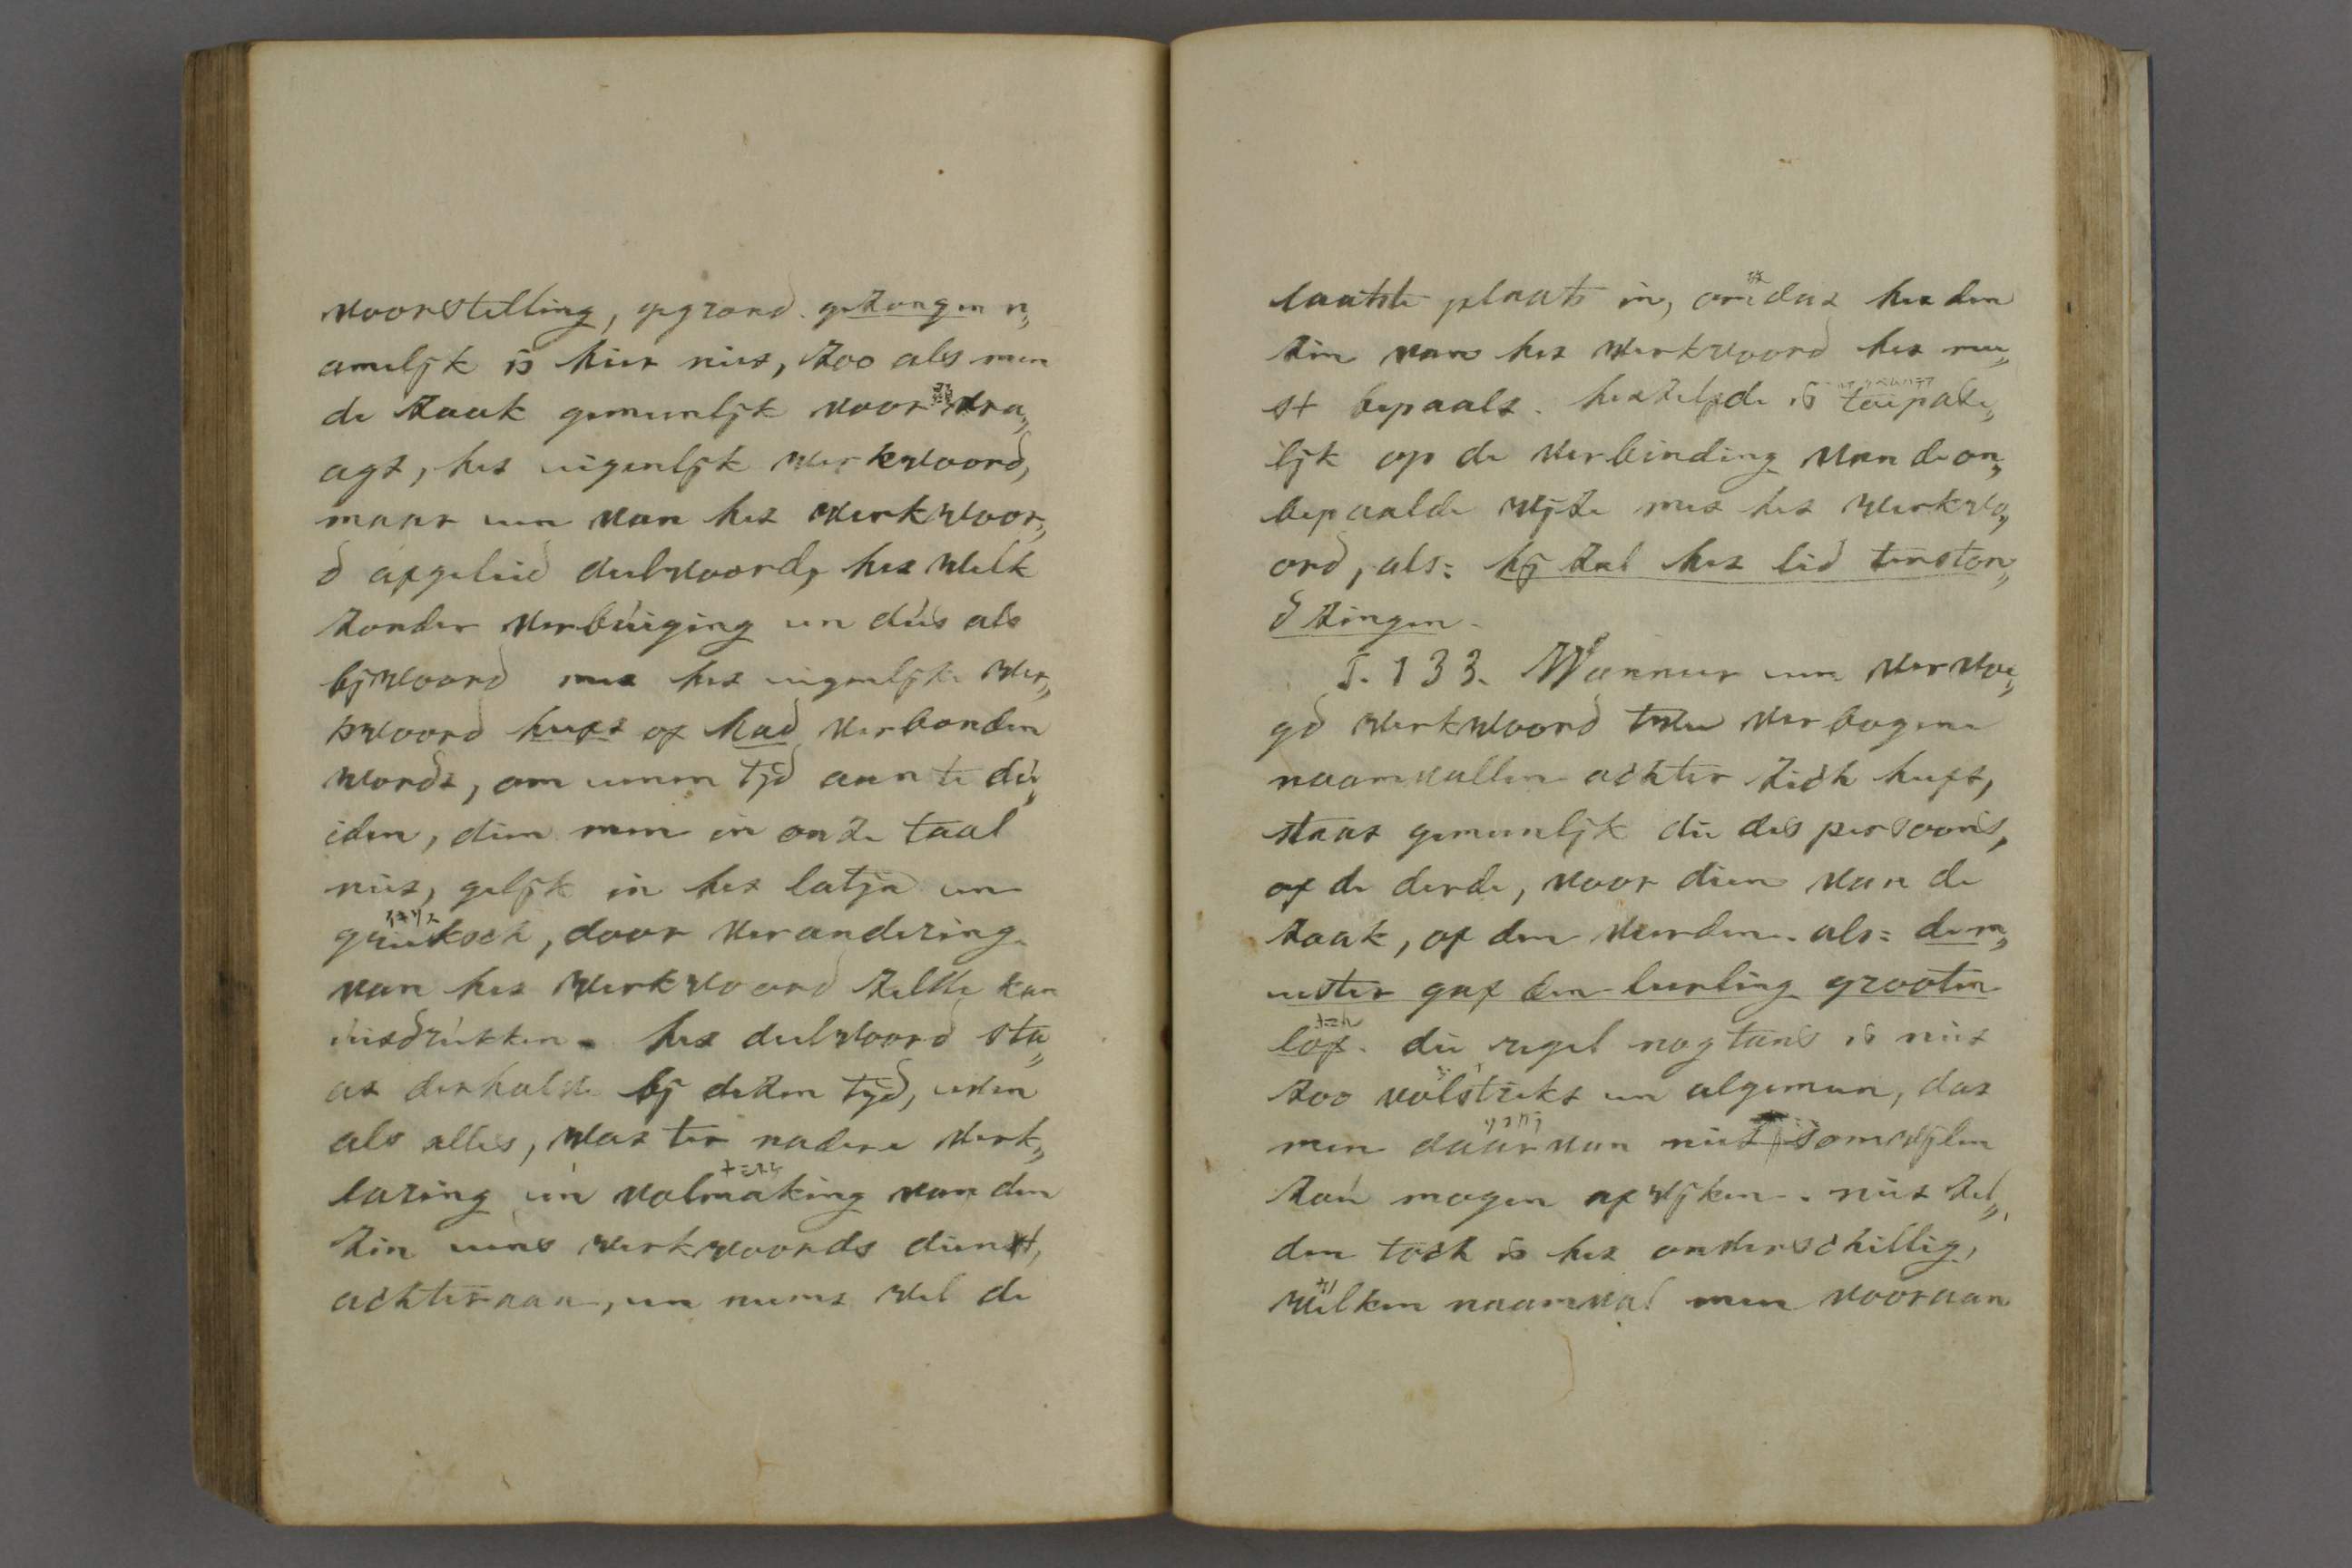 voorstelling, gegrond. gezongen n„
amelijk is hier niet, zoo als men
de zaak gemeenlijk voor dra„
agt, het eigenlijk werkwoord,
maar een van het werkwoor„
d afgeleid deelwoord, het welk
zonder verbuiging en dus als
bijwoord met het eigenlijke wer„
kwoord heeft of had verbonden
wordt, om eenen tijd aan te du„
iden, dien men in onze taal
niet, gelijk in het latijn en
grieksch, door verandering
van het werkwoord zelve kan
uitdrukken. het deelwoord sta„
at derhalve bij dezen tijd, even
als alles, wat ter nadere verk„
laring en volmaking van den
zin eens werkwoords dienst,
achteraan, en neemt wel de
laatste plaats in, omdat het den
zin van het werkwoord het mee„
st bepaalt. hetzelfde is toepasse„
lijk op de verbinding van de on„
bepaalde wijze met het werkwo„
ord, als: hij zal het lied terston„
d zingen.
§. 133. Wanneer een vervoe„
gd werkwoord twee verbogene
naamvallen achter zich heeft,
staat gemeenlijk die des persoons,
of de derde, voor dien van de
zaak, of den vierden. als: de m„
eester gaf den leerling grooten
lof. die regel nogtans is niet
zoo volstrekt en algemeen, dat
men daarvan niet somwijlen
zou mogen afwijken. niet zel„
den toch is het onverschillig,
welken naamval men vooraan